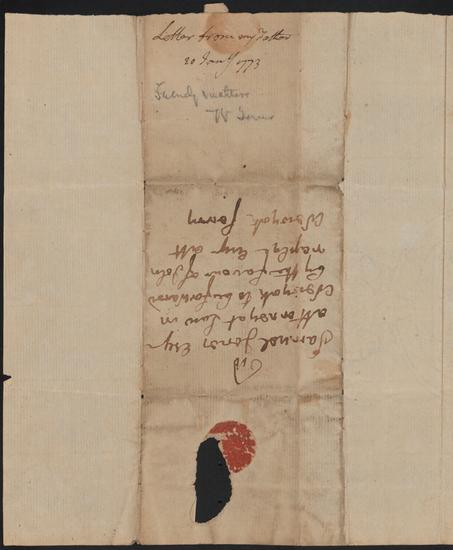 Letter from my Father
20 Jany 1773
Family matters
To
Samuel Jones Esqr
Attorney at Law in
New york to be forward
by the favour of John
Esqr att
New york